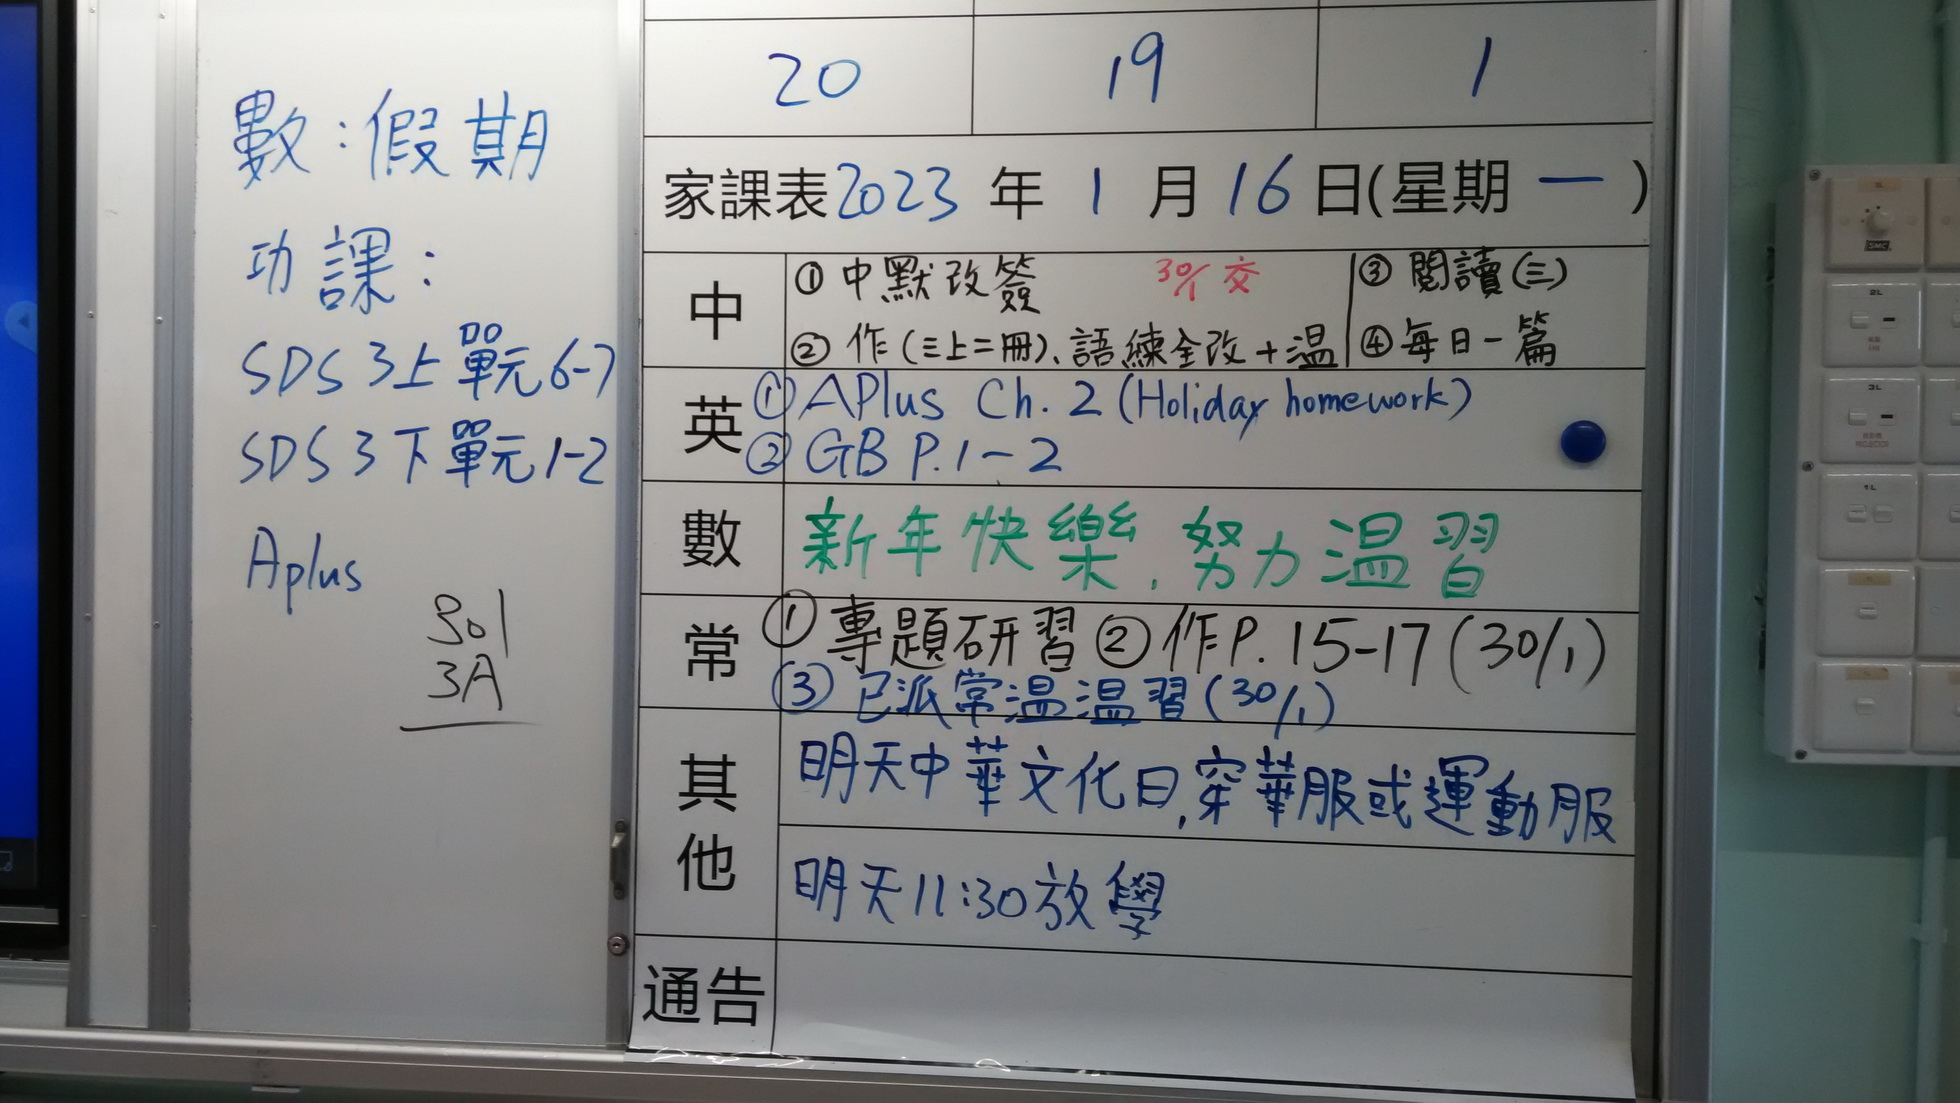 數：假期
功課：
SDS 3上單元6-7
SDS 3下單元1-2
Aplus
301
3A
20 19 1
家課表2023年1月16日(星期一)
中 ①中默改簽 30/1交 ③閱讀(三)
②作(三上二冊)、語練全改+温 ④每日一篇
英 ①APlus Ch. 2 (Holiday homework)
②GB P.1-2
數 新年快樂，努力温習
常 ①專題研習②作P. 15-17(30/1)
③已派常温温習(30/1)
其他 明天中華文化日，穿華服或運動服
明天11:30放學
通告